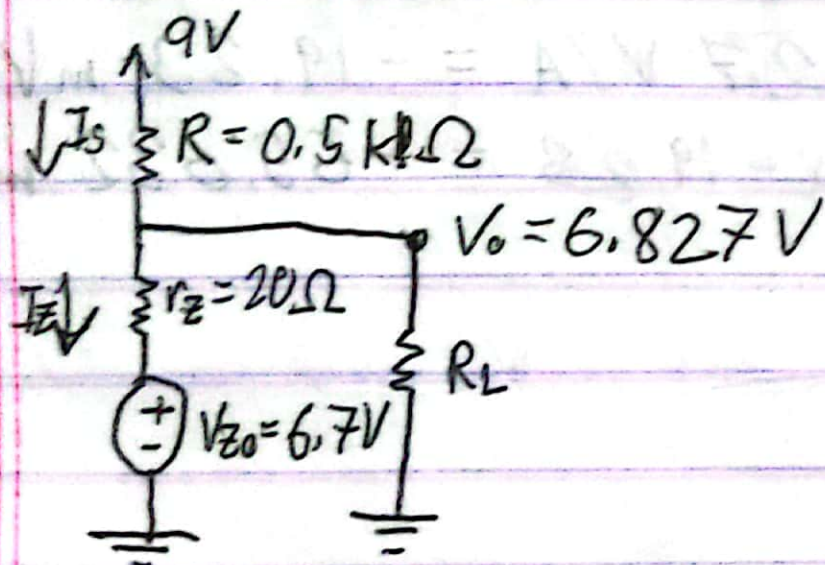 9V
Is R = 0.5 kΩ
Vo = 6.827 V
Iz rz = 20Ω
RL
+
-
Vzo = 6.7V